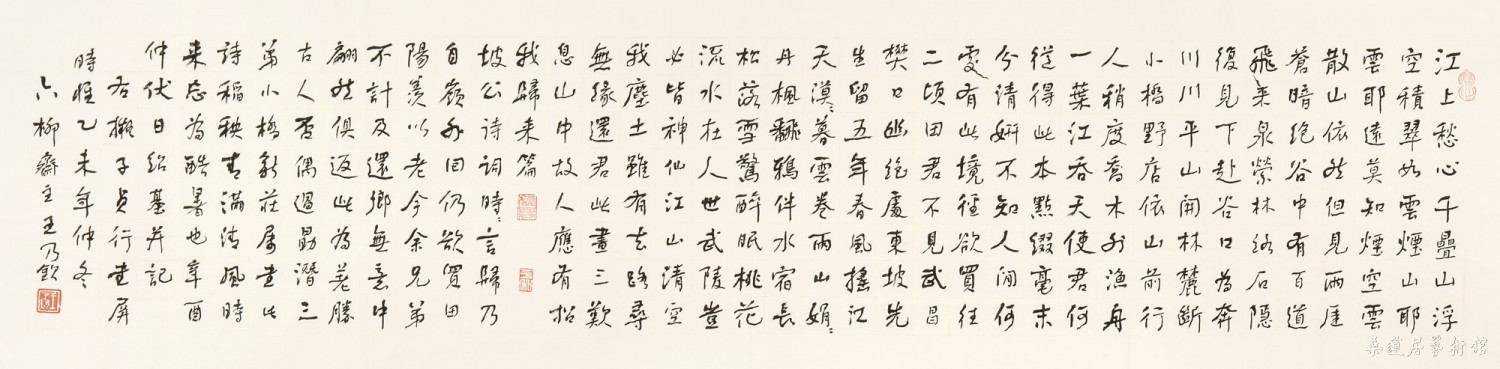 江上愁心千疊山浮
空積翠如雲煙山耶
雲耶遠莫知煙空雲
散山依然但見兩崖
蒼暗絕谷中有百道
飛來泉縈林絡石隱
復見下赴谷口為奔
川川平山開林麓斷
小橋野店依山前行
人稍度喬木外漁舟
一葉江吞天使君何
從得此本點綴毫末
分清妍不知人間何
處有此境徑欲買往
二頃田君不見武昌
樊口幽絕處東坡先
生留五年春風搖江
天漠〻暮雲卷雨山娟〻
丹楓翻鴉伴水宿長
松落雪驚醉眠桃花
流水在人世武陵豈
必皆神仙江山清空
我塵土雖有去路尋
無緣還君此畫三歎
息山中故人應有招
我歸來篇
坡公詩詞時〻言歸乃
自嶺外回仍欲買田
陽羨以老今余兄弟
不計及還鄉無意中
翩然俱返此為差勝
古人否偶過勖潛三
弟小橋新莊屬書此
詩稻秧青滿清風時
來忘為酷暑也辛酉
仲伏日紹基并記
右擬子貞行書屏
時惟乙未年仲冬
六柳齋主王乃欽
桑蓮居藝術館